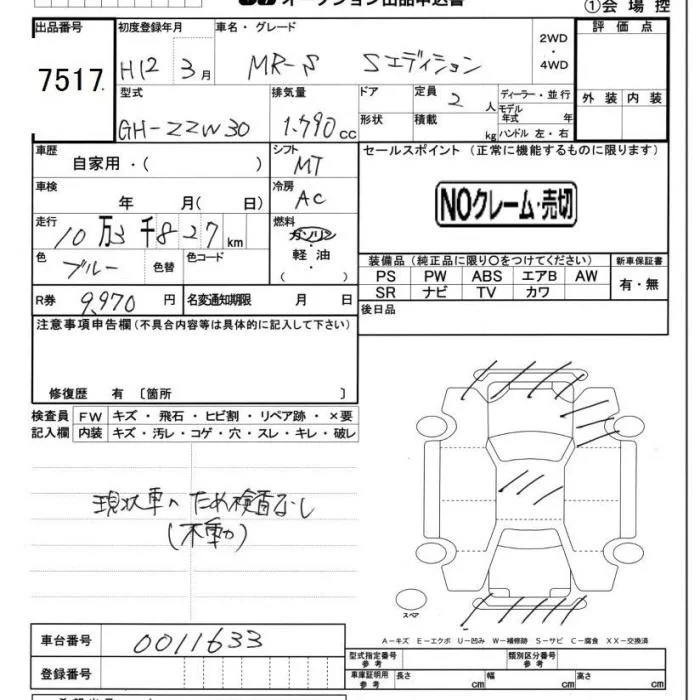 オークション出品申込書
①会場控
出品番号
7517.
初度登録年月
H12 3月
車名・グレード
MR-S Sエディション
2WD
・
4WD
評価点
外装 内装
型式
GH-ZZW30
排気量
1.790 cc
ドア
形状
定員 2 人
積載 kg
ディーラー・並行
モデル
年式 年
ハンドル 左・右
車歴
自家用・( )
シフト
MT
セールスポイント (正常に機能するものに限ります)
NOクレーム・売切
車検
年 月( 日)
冷房
AC
走行
10万3千827km
燃料
ガソリン
・
軽油
( )
色
ブルー
色替
色コード
装備品 (純正品に限り○をつけてください)
新車保証書
PS PW ABS エアB AW
SR ナビ TV カワ
有・無
R券 9,970 円
名変通知期限 月 日
後日品
注意事項申告欄(不具合内容等は具体的に記入して下さい)
修復歴 有 〔箇所 〕
検査員
記入欄
FW キズ・飛石・ヒビ割・リペア跡・×要
内装 キズ・汚レ・コゲ・穴・スレ・キレ・破レ
現状車の為検査なし
(不動)
スペア
A-キズ E-エクボ U-凹み W-補修跡 S-サビ C-腐食 XX-交換済
車台番号 0011633
登録番号
型式指定番号
参考
類別区分番号
参考
車庫証明用
参考
長さ cm 幅 cm 高さ cm